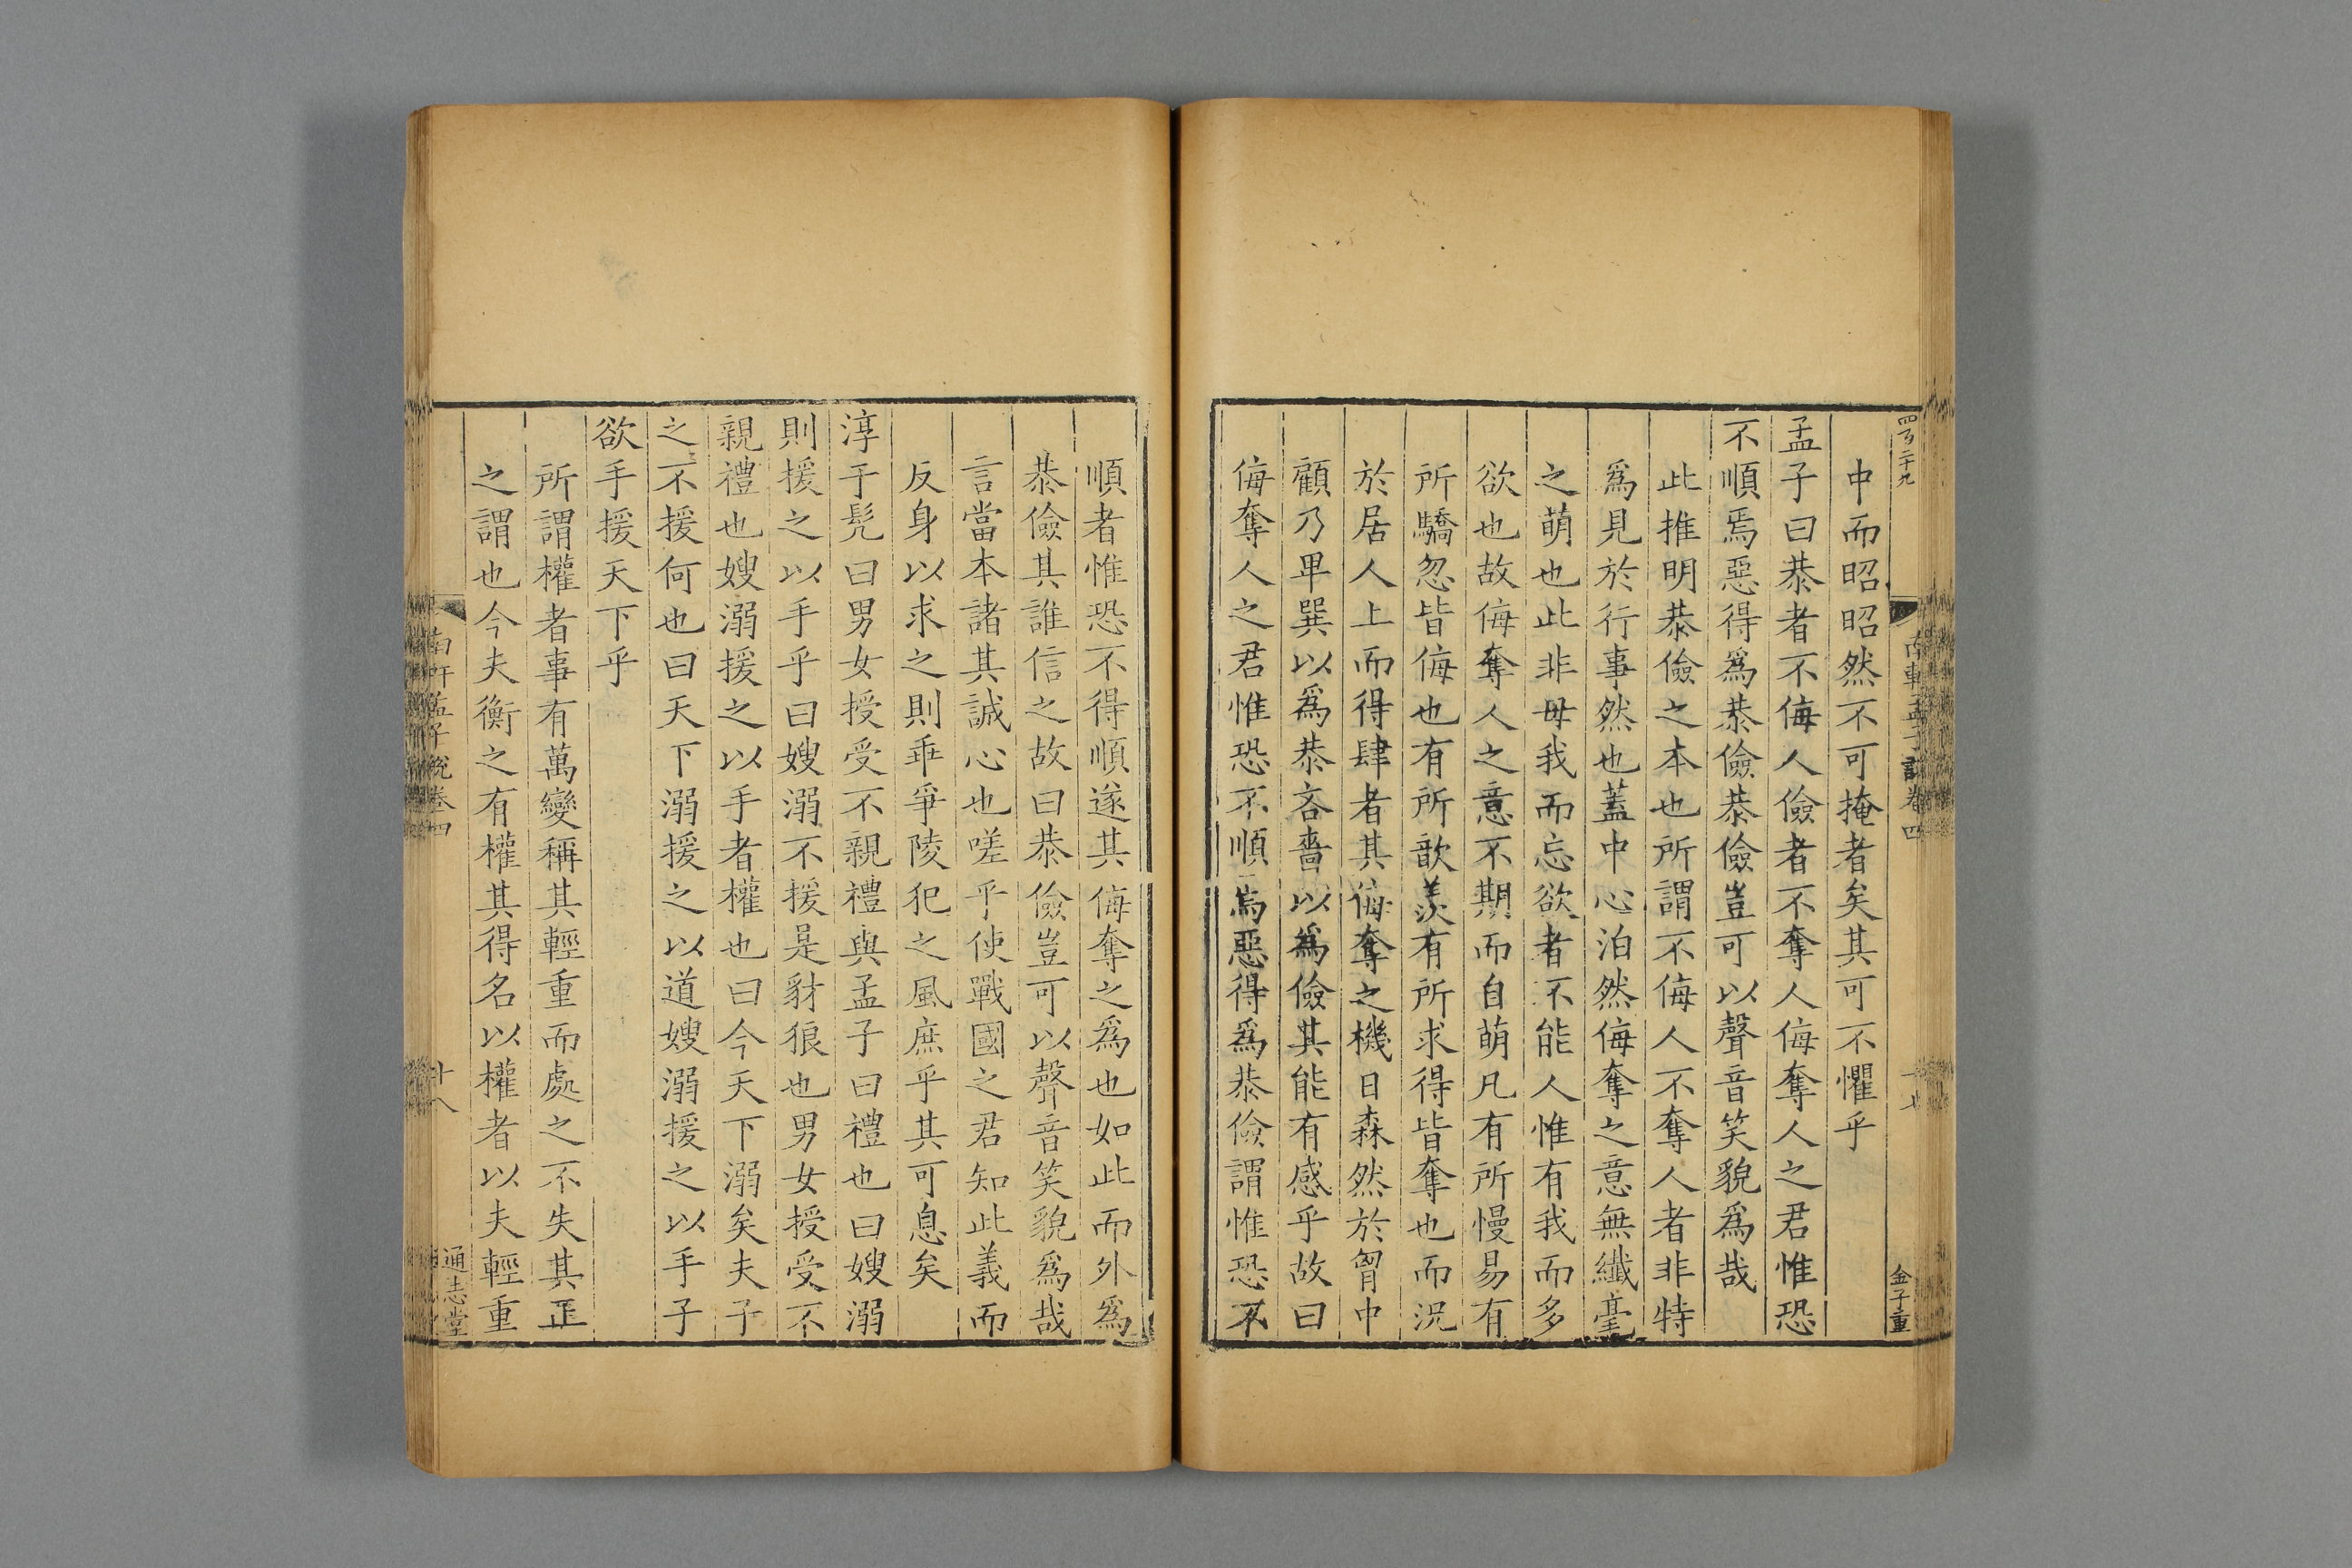 四百二十九
孟子說卷四
金子重
中而昭昭然不可掩者矣其可不懼乎
孟子曰恭者不侮人儉者不奪人侮奪人之君惟恐
不順焉惡得爲恭儉恭儉豈可以聲音笑貌爲哉
此推明恭儉之本也所謂不侮人不奪人者非特
爲見於行事然也蓋中心泊然侮奪之意無纖毫
之萌也此非毋我而忘欲者不能人惟有我而多
欲也故侮奪人之意不期而自萌凡有所慢易有
所驕忽皆侮也有所歆羡有所求得皆奪也而況
於居人上而得肆者其侮奪之機日森然於胷中
顧乃卑巽以爲恭吝嗇以爲儉其能有感乎故曰
侮奪人之君惟恐不順焉惡得爲恭儉謂惟恐不
順者惟恐不得順遂其侮奪之爲也如此而外爲
恭儉其誰信之故曰恭儉豈可以聲音笑貌爲哉
言當本諸其誠心也嗟乎使戰國之君知此義而
反身以求之則乖爭陵犯之風庶乎其可息矣
淳于髠曰男女授受不親禮與孟子曰禮也曰嫂溺
則援之以手乎曰嫂溺不援是豺狼也男女授受不
親禮也嫂溺援之以手者權也曰今天下溺矣夫子
之不援何也曰天下溺援之以道嫂溺援之以手子
欲手援天下乎
所謂權者事有萬變稱其輕重而處之不失其正
之謂也今夫衡之有權其得名以權者以夫輕重
南軒孟子說卷四
十八
通志堂